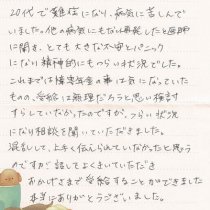 20代で難病になり、病気に苦しんで
いました。他の病気にもなり再発したと医師
に聞き、とても大きな不安とパニック
になり精神的にもつらい状況でした。
これまでは障害年金の事は気になっていた
ものの、受給は無理だろうと思い検討
すらしていなかったのですが、つらい状況
になり相談を聞いていただきました。
混乱して、上手く伝えられていなかったと思う
のですが 話してよくきいていただき
おかげさまで受給することができました
本当にありがとうございました。